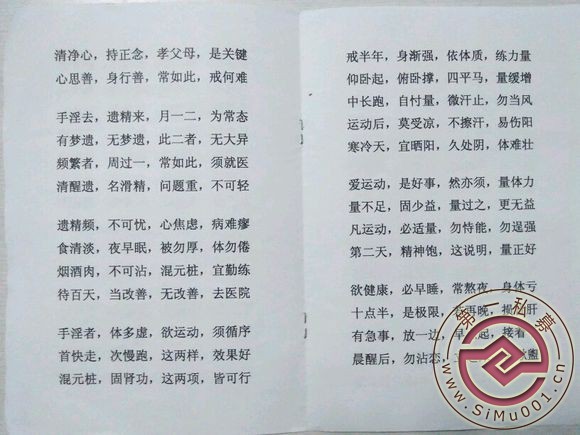 清净心，持正念，孝父母，是关键
心思善，身行善，常如此，戒何难
手淫去，遗精来，月一二，为常态
有梦遗，无梦遗，此二者，无大异
频繁者，周过一，常如此，须就医
清醒遗，名滑精，问题重，不可轻
遗精频，不可忧，心焦虑，病难瘳
食清淡，夜早眠，被勿厚，体勿倦
烟酒肉，不可沾，混元桩，宜勤练
待百天，当改善，无改善，去医院
手淫者，体多虚，欲运动，须循序
首快走，次慢跑，这两样，效果好
混元桩，固肾功，这两项，皆可行
戒半年，身渐强，依体质，练力量
仰卧起，俯卧撑，四平马，量缓增
中长跑，自忖量，微汗止，勿当风
运动后，莫受凉，不擦汗，易伤阳
寒冷天，宜晒阳，久处阴，体难壮
爱运动，是好事，然亦须，量体力
量不足，固少益，量过之，更无益
凡运动，必适量，勿恃能，勿逞强
第二天，精神饱，这说明，量正好
欲健康，必早睡，常熬夜，身体亏
十点半，是极限，再晚，损 肝
有急事，放一边，早 起，接着
晨醒后，勿沾恋，盥
第一私募
www.SiMu001.cn